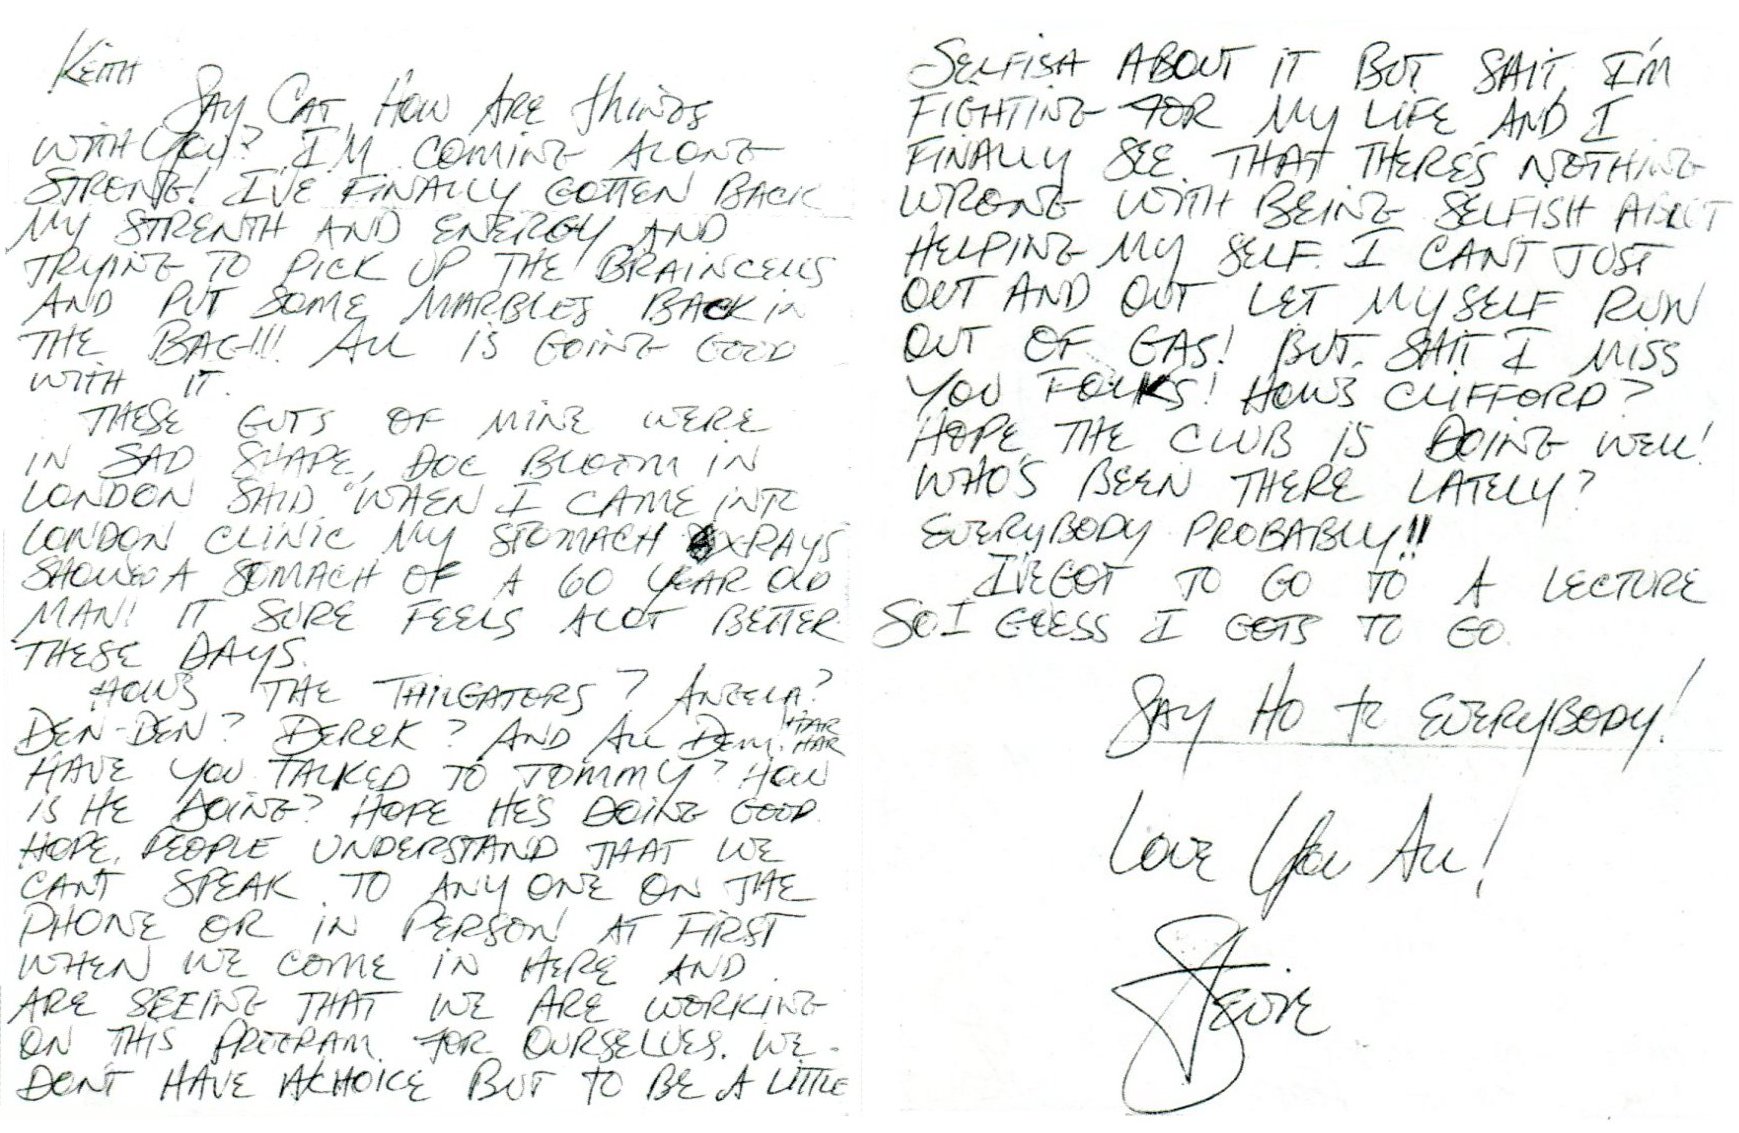 KEITH
SAY CAT, HOW ARE THINGS
WITH YOU? I'M COMING ALONG
STRONG! I'VE FINALLY GOTTEN BACK
MY STRENTH AND ENERGY AND
TRYING TO PICK UP THE BRAINCELLS
AND PUT SOME MARBLES BACK IN
THE BAG!!! ALL IS GOING GOOD
WITH IT.
THESE GUTS OF MINE WERE
IN SAD SHAPE, DOC BLOOM IN
LONDON SAID "WHEN I CAME INTO
LONDON CLINIC MY STOMACH X-RAYS
SHOWED A STOMACH OF A 60 YEAR OLD
MAN! IT SURE FEELS ALOT BETTER
THESE DAYS.
HOW'S THE TAILGATORS? ANGELA?
DEN-DEN? DEREK? AND ALL DEM! HAR HAR
HAVE YOU TALKED TO TOMMY? HOW
IS HE DOING? HOPE HE'S DOING GOOD.
HOPE PEOPLE UNDERSTAND THAT WE
CANT SPEAK TO ANY ONE ON THE
PHONE OR IN PERSON AT FIRST
WHEN WE COME IN HERE AND
ARE SEEING THAT WE ARE WORKING
ON THIS PROGRAM FOR OURSELVES. WE
DON'T HAVE A CHOICE BUT TO BE A LITTLE
SELFISH ABOUT IT BUT SHIT, I'M
FIGHTING FOR MY LIFE AND I
FINALLY SEE THAT THERE'S NOTHING
WRONG WITH BEING SELFISH ABOUT
HELPING MY SELF. I CANT JUST
OUT AND OUT LET MYSELF RUN
OUT OF GAS! BUT SHIT I MISS
YOU FOLKS! HOW'S CLIFFORD?
HOPE THE CLUB IS DOING WELL!
WHO'S BEEN THERE LATELY?
EVERYBODY PROBABLY!!
I'VE GOT TO GO TO A LECTURE
SO I GUESS I GOTS TO GO.
SAY HO TO EVERYBODY!
LOVE YOU ALL!
STEVIE